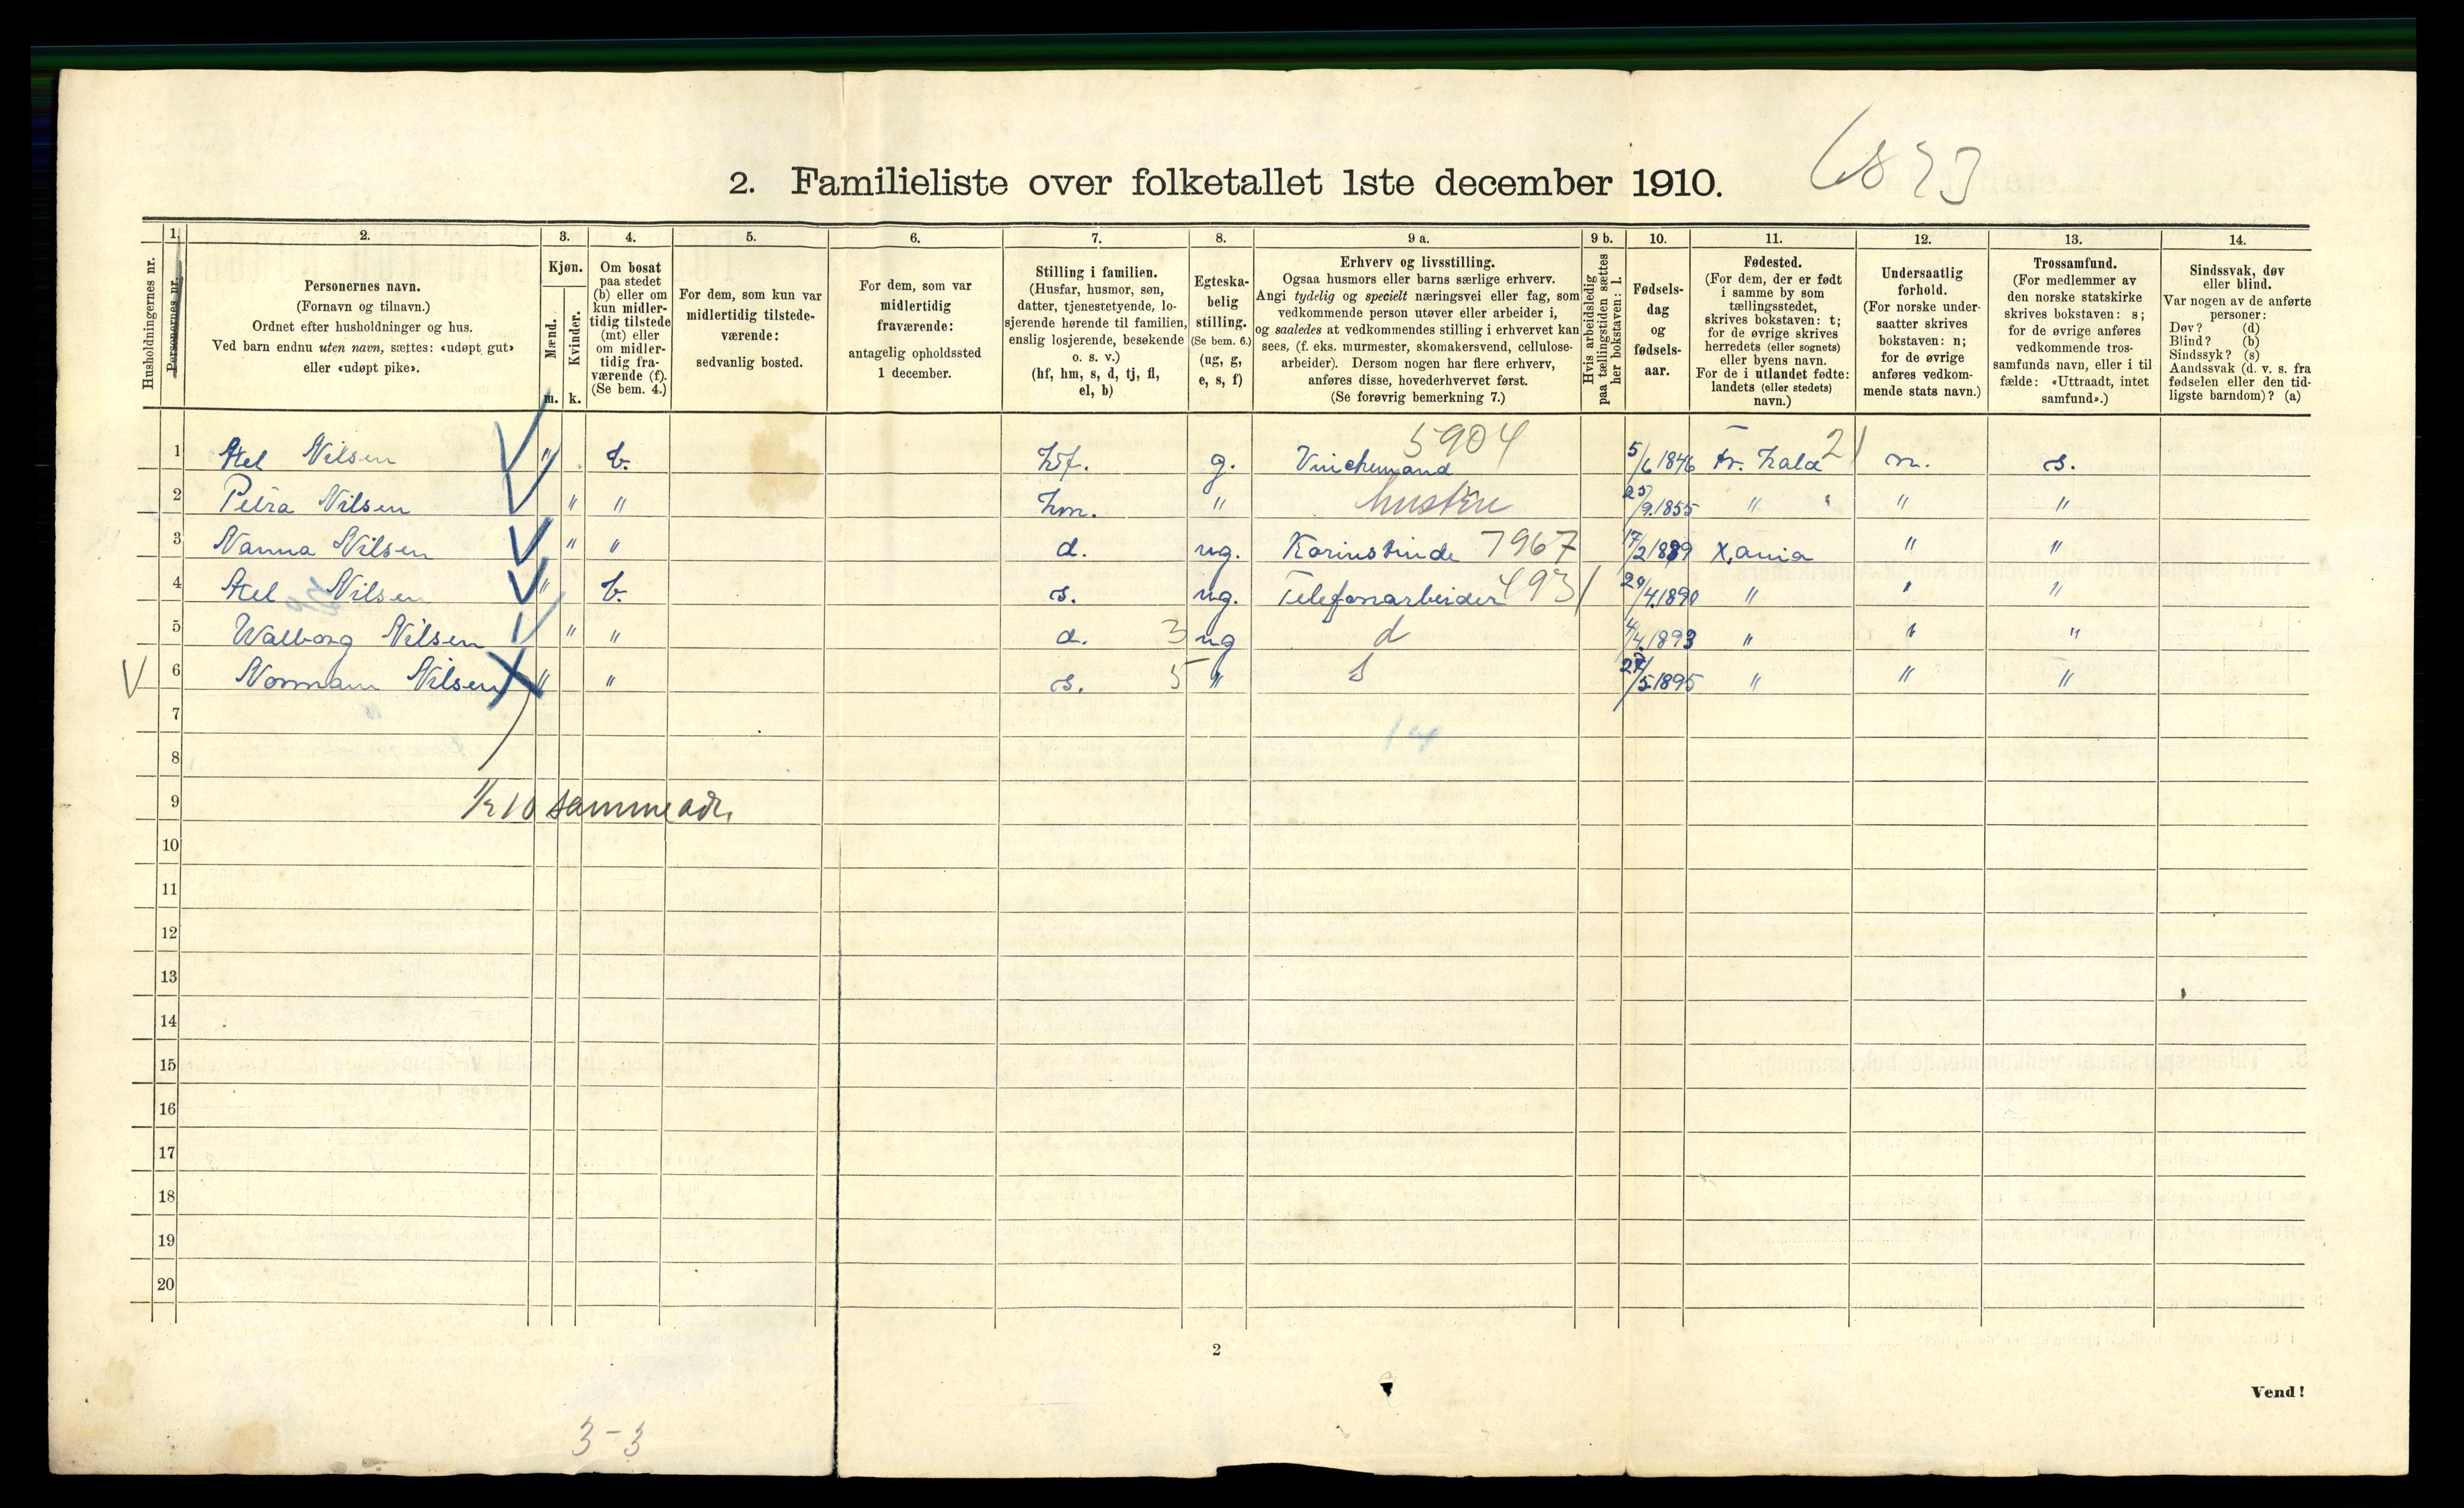 6823
2. Familieliste over folketallet 1ste december 1910.
Husholdningernes nr.
1. Personernes nr.
2. Personernes navn. (Fornavn og tilnavn.) Ordnet efter husholdninger og hus. Ved barn endnu uten navn, sættes: «udøpt gut» eller «udøpt pike».
3. Kjøn. Mænd. m. Kvinder. k.
4. Om bosat paa stedet (b) eller om kun midlertidig tilstede (mt) eller om midlertidig fraværende (f). (Se bem. 4.)
5. For dem, som kun var midlertidig tilstedeværende: sedvanlig bosted.
6. For dem, som var midlertidig fraværende: antagelig opholdssted 1 december.
7. Stilling i familien. (Husfar, husmor, søn, datter, tjenestetyende, losjerende hørende til familien, enslig losjerende, besøkende o. s. v.) (hf, hm, s, d, tj, fl, el, b)
8. Egteskabelig stilling. (Se bem. 6.) (ug, g, e, s, f)
9 a. Erhverv og livsstilling. Ogsaa husmors eller barns særlige erhverv. Angi tydelig og specielt næringsvei eller fag, som vedkommende person utøver eller arbeider i, og saaledes at vedkommendes stilling i erhvervet kan sees, (f. eks. murmester, skomakersvend, cellulosearbeider). Dersom nogen har flere erhverv, anføres disse, hovederhvervet først. (Se forøvrig bemerkning 7.)
9 b. Hvis arbeidsledig paa tællingstiden sættes her bokstaven: l.
10. Fødselsdag og fødselsaar.
11. Fødested. (For dem, der er født i samme by som tællingsstedet, skrives bokstaven: t; for de øvrige skrives herredets (eller sognets) eller byens navn. For de i utlandet fødte: landets (eller stedets) navn.)
12. Undersaatlig forhold. (For norske undersaatter skrives bokstaven: n; for de øvrige anføres vedkommende stats navn.)
13. Trossamfund. (For medlemmer av den norske statskirke skrives bokstaven: s; for de øvrige anføres vedkommende trossamfunds navn, eller i tilfælde: «Uttraadt, intet samfund».)
14. Sindssvak, døv eller blind. Var nogen av de anførte personer: Døv? (d) Blind? (b) Sindssyk? (s) Aandssvak (d. v. s. fra fødselen eller den tidligste barndom)? (a)
1 Axel Nilsen " b. hf. g. 5904 5/6 1846 Fr. hald 21 n. s.
2 Petra Nilsen " " hm. " hustru 25/9.1855 " " " "
3 Nanna Nilsen " " d. ug. 7967 17/2 1889 X,ania " "
4 Axel Nilsen " b. s. ug. Telefonarbeider 4931 29/4.1890 " " "
5 Walborg Nilsen " " d. 3 ug d 4/4.1893 " " "
6 Normann Nilsen " " s. 5 " s /5.1895 " " "
7
14
8
9 1/2 10 samme adr.
10
11
12
13
14
15
16
17
18
19
20
2
Vend!
3-3